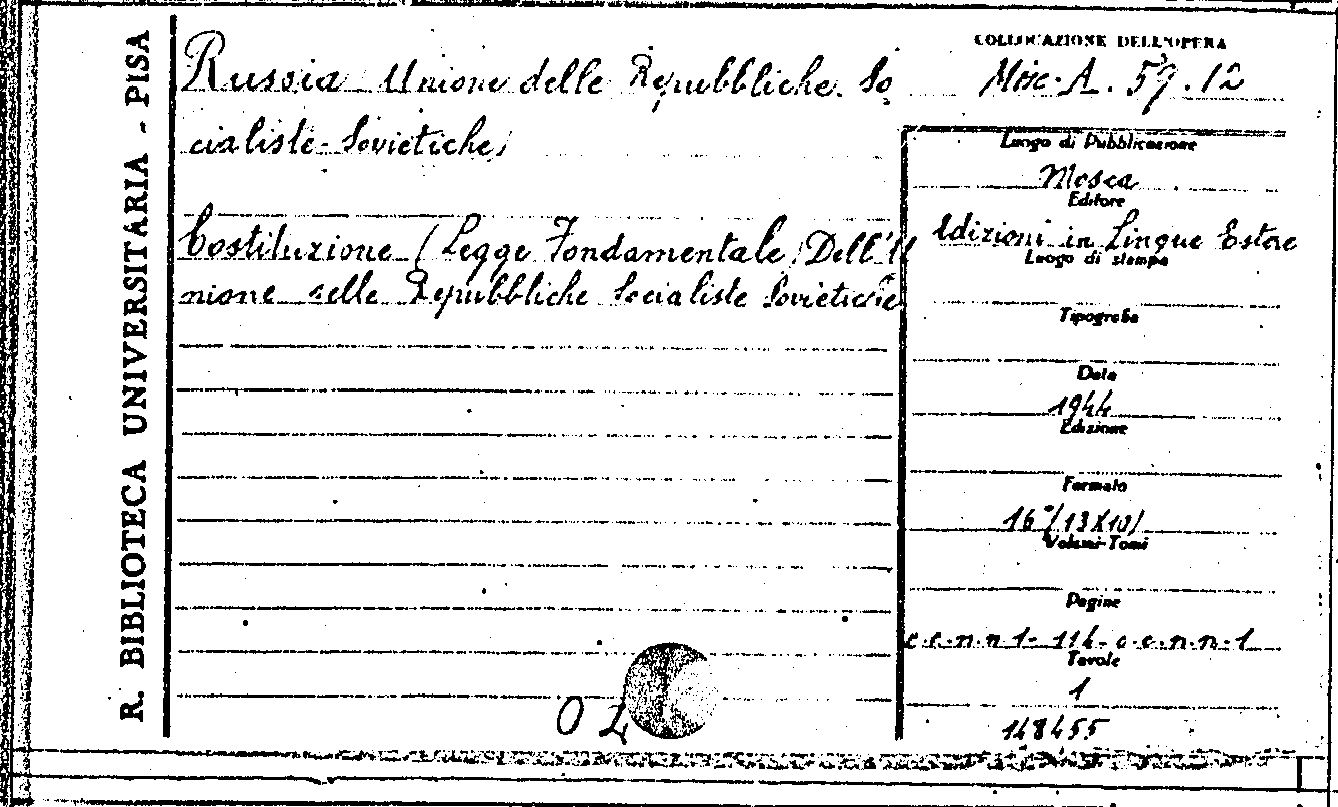 R. BIBLIOTECA UNIVERSITARIA - PISA
Russia Unione delle Repubbliche So
cialiste Sovietiche
Costituzione (Legge Fondamentale) Dell'U
nione delle Repubbliche Socialiste Sovietiche
COLLOCAZIONE DELL'OPERA
Misc. A. 59.12
Luogo di Pubblicazione
Mosca
Editore
Edizioni in Lingue Estere
Luogo di stampa
Tipografia
Data
1944
Edizione
Formato
16°/13X10/
Volumi-Tomi
Pagine
c.c.n.n 1- 114- c.c.n.n-1
Tavole
1
148455